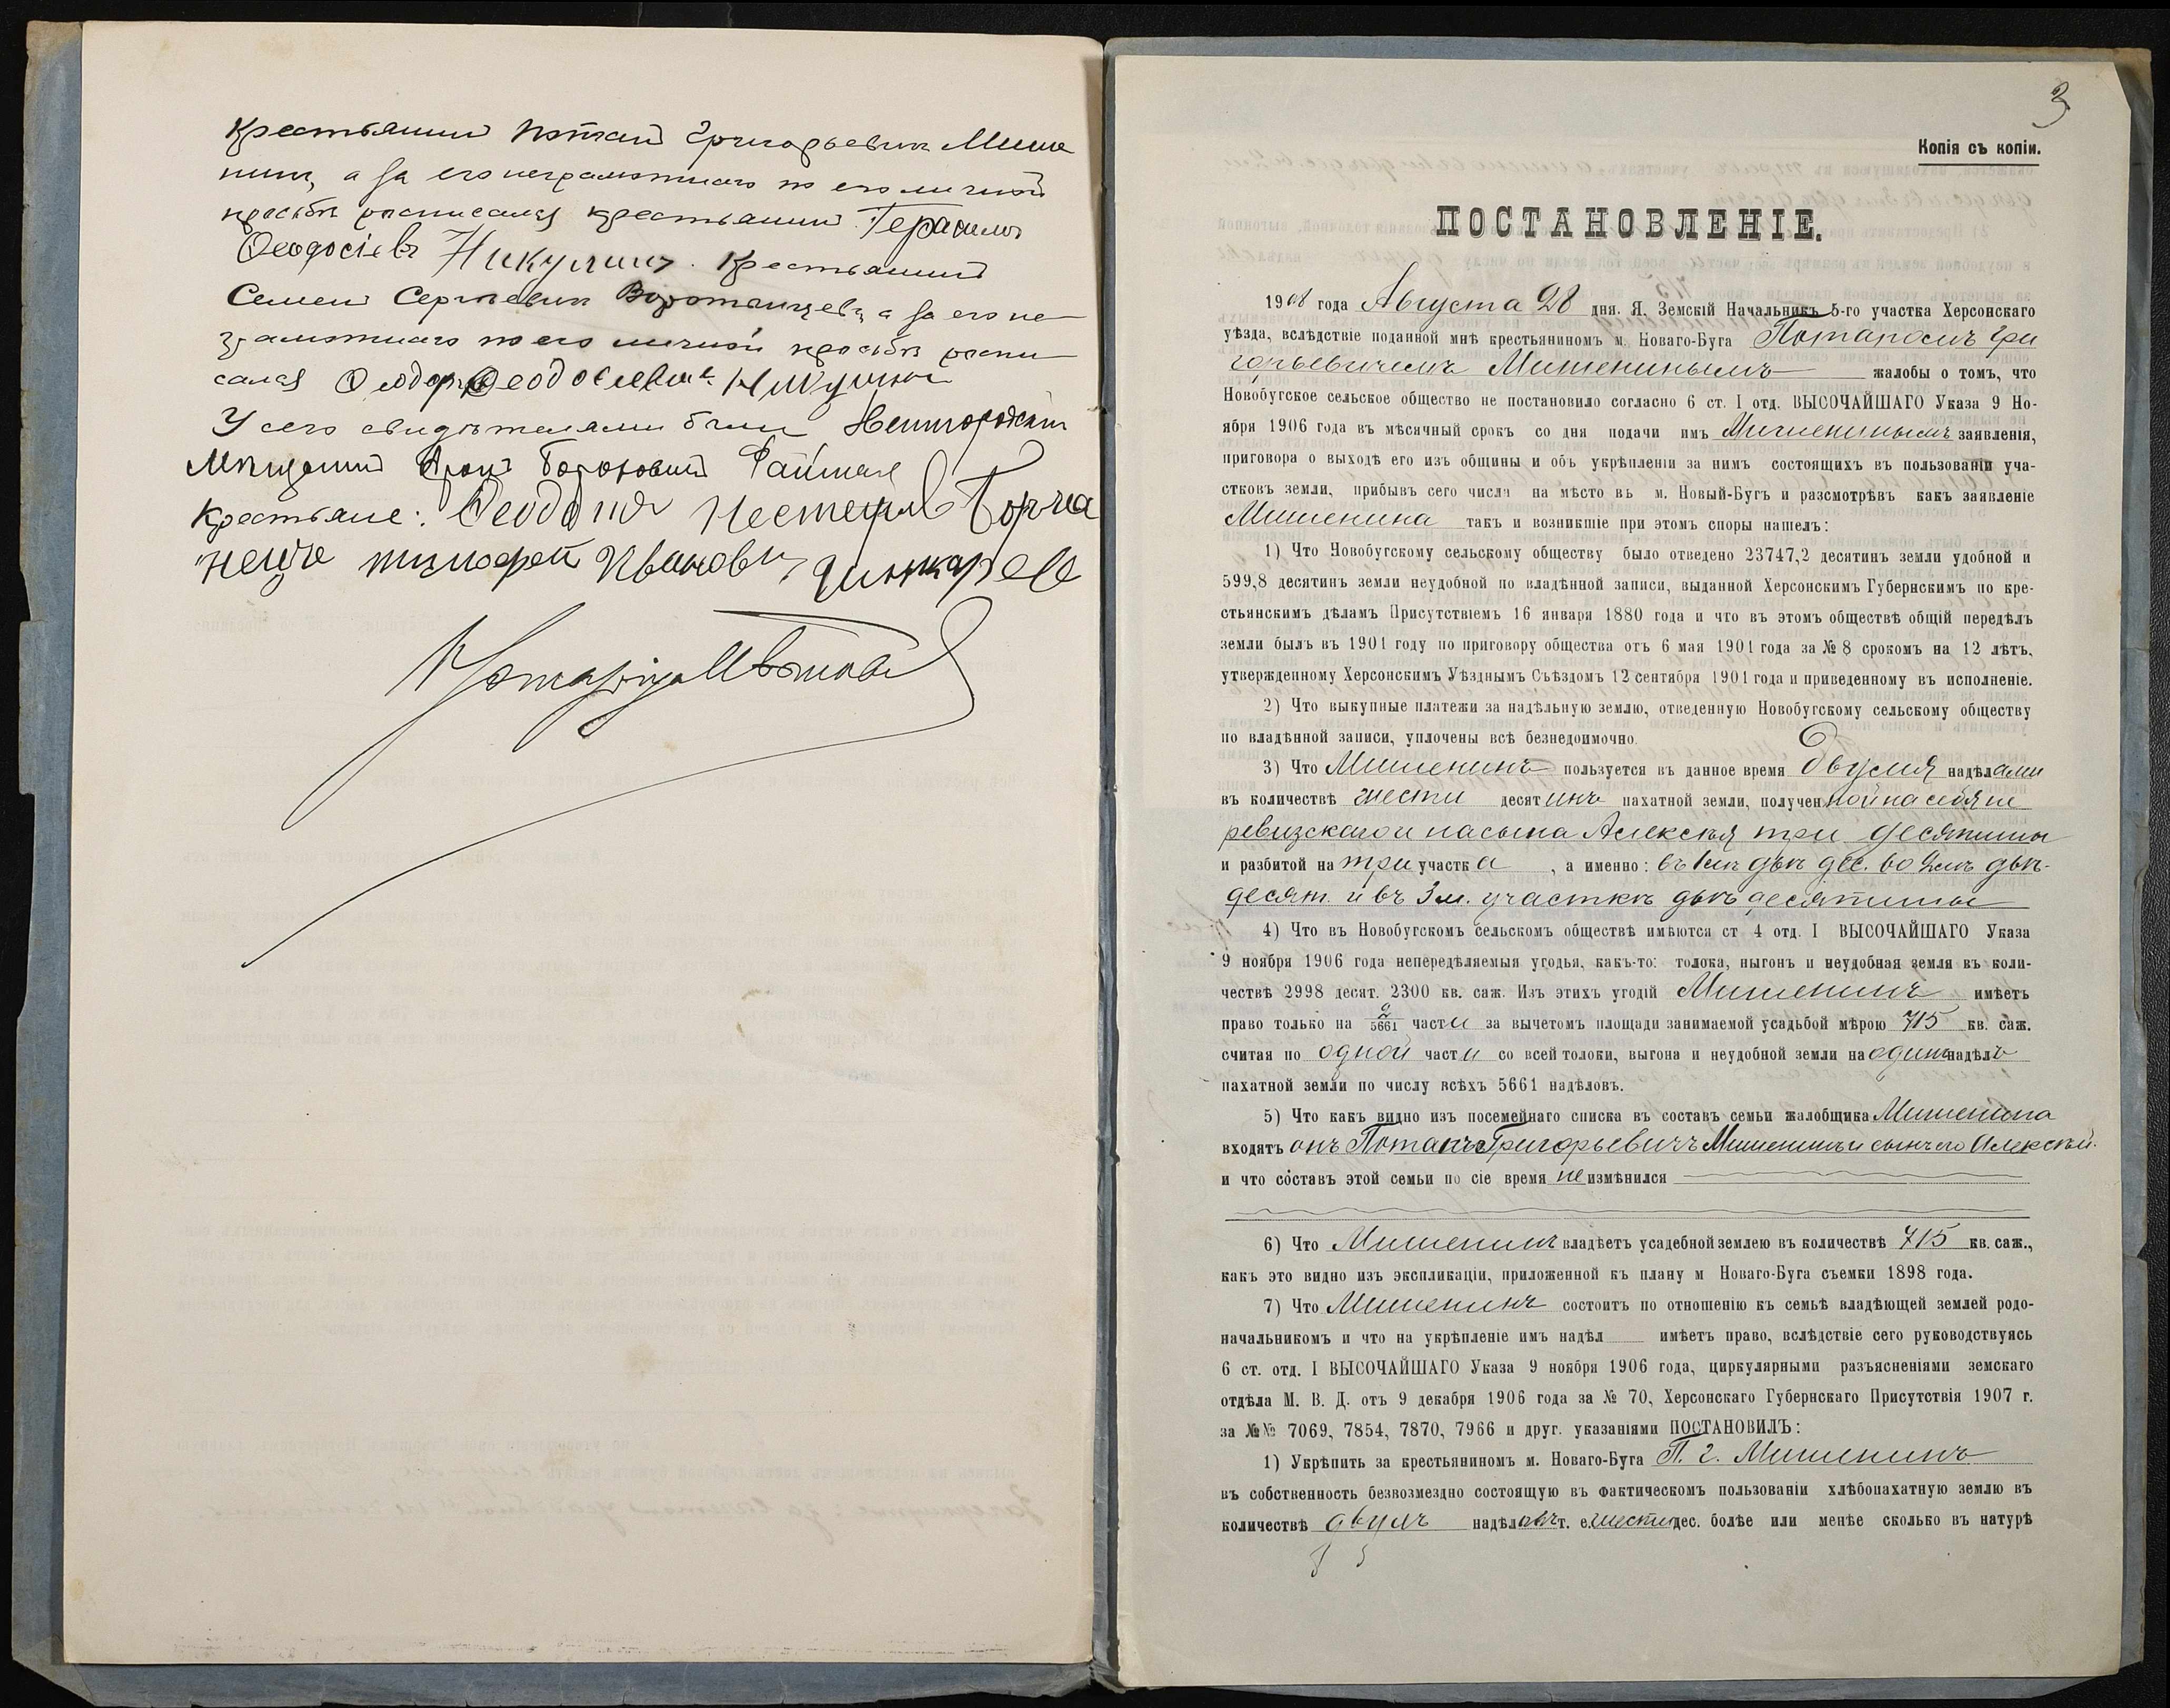 Крестьянинъ Потапъ Григорьевичъ Мише
нинъ, а за его неграмотнаго по его личной
просьбѣ расписался крестьянинъ Герасимъ
Ѳеодосіевъ Никулинъ. Крестьянинъ
Семенъ Сергѣевичъ Воротынцевъ, а за его не-
грамотнаго по его личной просьбѣ распи
сался Ѳеодоръ Ѳеодосіевичъ Никулинъ
У сего свидѣтелями были
Мѣщанинъ Аронъ
Крестьяне: Нестеровъ
Тимофей Ивановъ
Нотаріусъ
3
Копія съ копіи.
ПОСТАНОВЛЕНІЕ.
1908 года Августа 28 дня. Я, Земскій Начальникъ 5-го участка Херсонскаго
уѣзда, вслѣдствіе поданной мнѣ крестьяниномъ м. Новаго-Буга Потапомъ Гри
горьевичемъ Мишенинымъ жалобы о томъ, что
Новобугское сельское общество не постановило согласно 6 ст. I отд. ВЫСОЧАЙШАГО Указа 9 Но-
ября 1906 года въ мѣсячный срокъ со дня подачи имъ Мишенинымъ заявленія,
приговора о выходѣ его изъ общины и объ укрѣпленіи за нимъ состоящихъ въ пользованіи уча-
стковъ земли, прибывъ сего числа на мѣсто въ м. Новый-Бугъ и разсмотрѣвъ какъ заявленіе
Мишенина такъ и возникшіе при этомъ споры нашелъ:
1) Что Новобугскому сельскому обществу было отведено 23747,2 десятинъ земли удобной и
599,8 десятинъ земли неудобной по владѣнной записи, выданной Херсонскимъ Губернскимъ по кре-
стьянскимъ дѣламъ Присутствіемъ 16 января 1880 года и что въ этомъ обществѣ общій передѣлъ
земли былъ въ 1901 году по приговору общества отъ 6 мая 1901 года за № 8 срокомъ на 12 лѣтъ,
утвержденному Херсонскимъ Уѣзднымъ Съѣздомъ 12 сентября 1901 года и приведенному въ исполненіе.
2) Что выкупные платежи за надѣльную землю, отведенную Новобугскому сельскому обществу
по владѣнной записи, уплочены всѣ безнедоимочно.
3) Что Мишенинъ пользуется въ данное время двумя надѣлами
въ количествѣ шести десятинъ пахатной земли, полученной на себя не
ревизскаго и на сына Алексѣя три десятины
и разбитой на три участка, а именно: въ 1мъ двѣ дес. во 2мъ двѣ-
десят. и въ 3м. участкѣ двѣ десятины
4) Что въ Новобугскомъ сельскомъ обществѣ имѣются ст 4 отд. I ВЫСОЧАЙШАГО Указа
9 ноября 1906 года непередѣляемыя угодья, какъ-то: толока, выгонъ и неудобная земля въ коли-
чествѣ 2998 десят. 2300 кв. саж. Изъ этихъ угодій Мишенинъ имѣетъ
право только на 2/5661 части за вычетомъ площади занимаемой усадьбой мѣрою 715 кв. саж.
считая по одной части со всей толоки, выгона и неудобной земли на одинъ надѣлъ
пахатной земли по числу всѣхъ 5661 надѣловъ.
5) Что какъ видно изъ посемейнаго списка въ составъ семьи жалобщика Мишенина
входятъ онъ Потапъ Григорьевичъ Мишенинъ и сынъ его Алексѣй.
и что составъ этой семьи по сіе время не измѣнился
6) Что Мишенинъ владѣетъ усадебной землею въ количествѣ 715 кв. саж.,
какъ это видно изъ экспликаціи, приложенной къ плану м Новаго-Буга съемки 1898 года.
7) Что Мишенинъ состоитъ по отношенію къ семьѣ владѣющей землей родо-
начальникомъ и что на укрѣпленіе имъ надѣл имѣетъ право, вслѣдствіе сего руководствуясь
6 ст. отд. I ВЫСОЧАЙШАГО Указа 9 ноября 1906 года, циркулярными разъясненіями земскаго
отдѣла М. В. Д. отъ 9 декабря 1906 года за № 70, Херсонскаго Губернскаго Присутствія 1907 г.
за №№ 7069, 7854, 7870, 7966 и друг. указаніями ПОСТАНОВИЛЪ:
1) Укрѣпить за крестьяниномъ м. Новаго-Буга П. Г. Мишенинъ
въ собственность безвозмездно состоящую въ фактическомъ пользованіи хлѣбопахатную землю въ
количествѣ двухъ надѣловъ т. е. шести дес. болѣе или менѣе сколько въ натурѣ